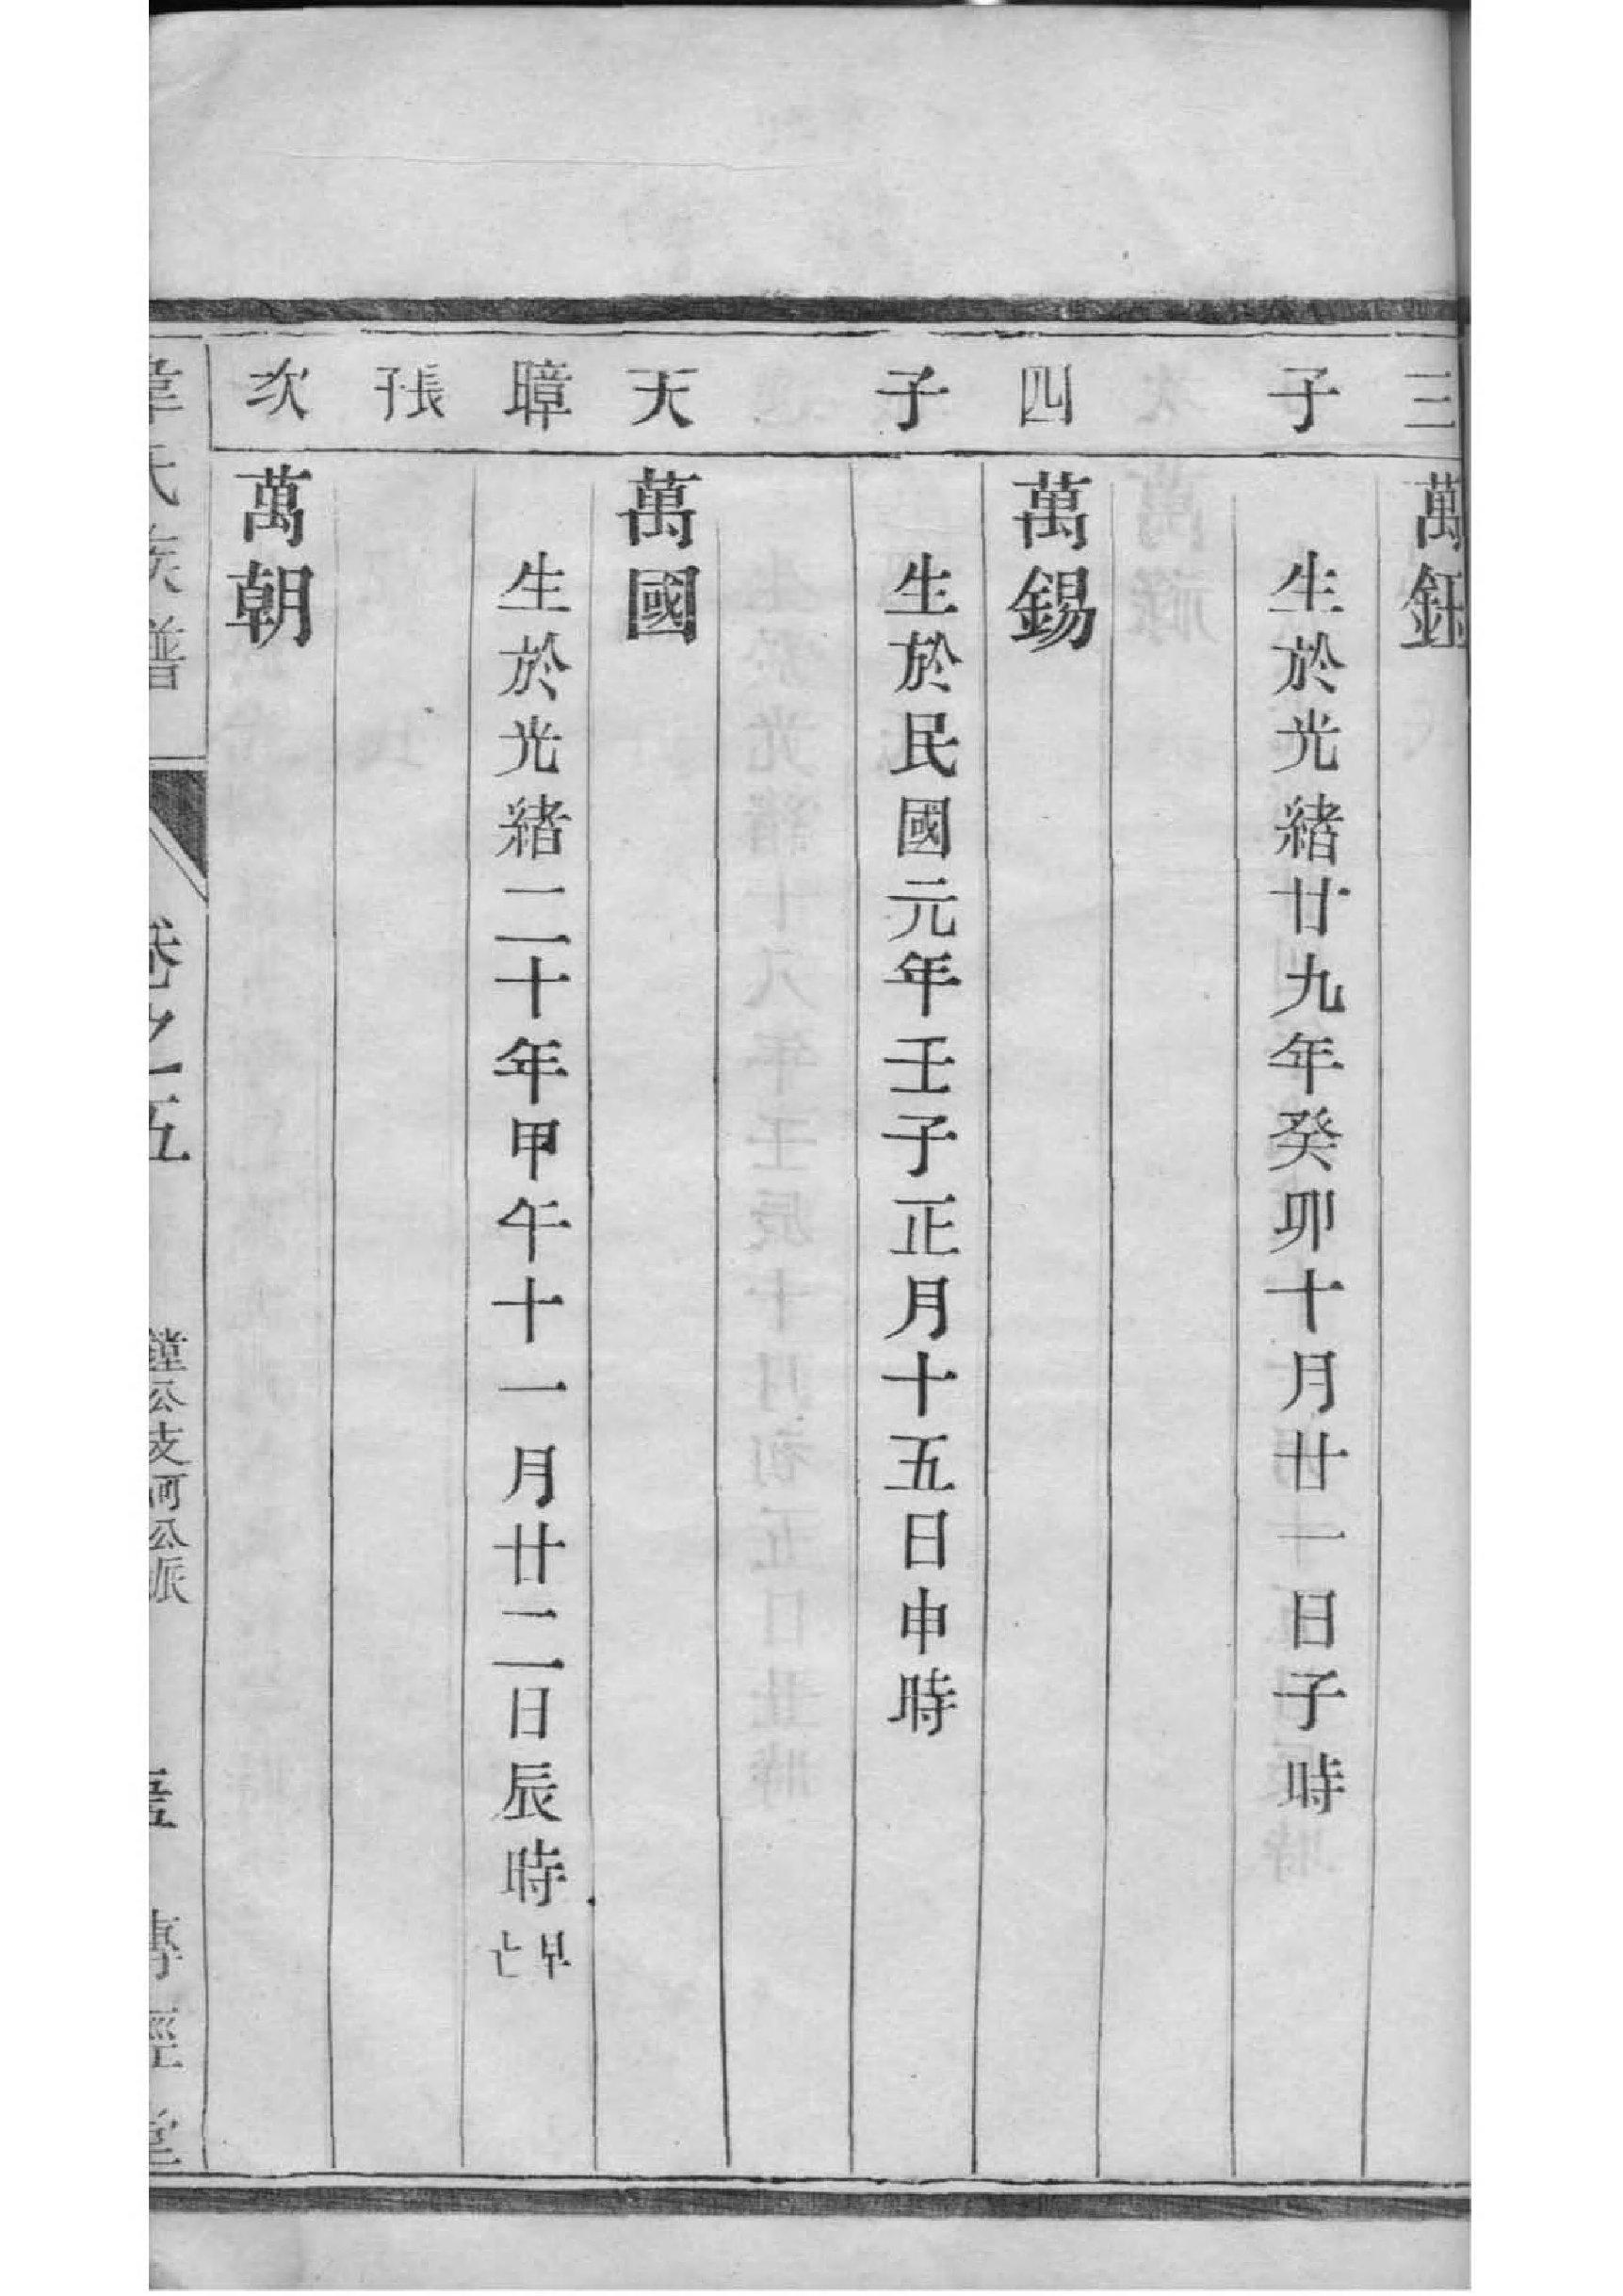 三 萬鈺
子 生於光緒廿九年癸卯十月廿一日子時
四 萬錫
子 生於民國元年壬子正月十五日申時
天 萬國
暲 生於光緒二十年甲午十一月廿二日辰時早亡
張
次 萬朝
韋氏族譜 卷之五 鏜公支河公派 傳經堂